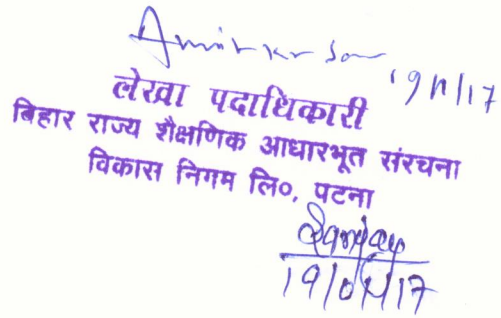 19/1/17
लेखा पदाधिकारी
बिहार राज्य शैक्षणिक आधारभूत संरचना
विकास निगम लि०, पटना
Sanjay
19/01/17